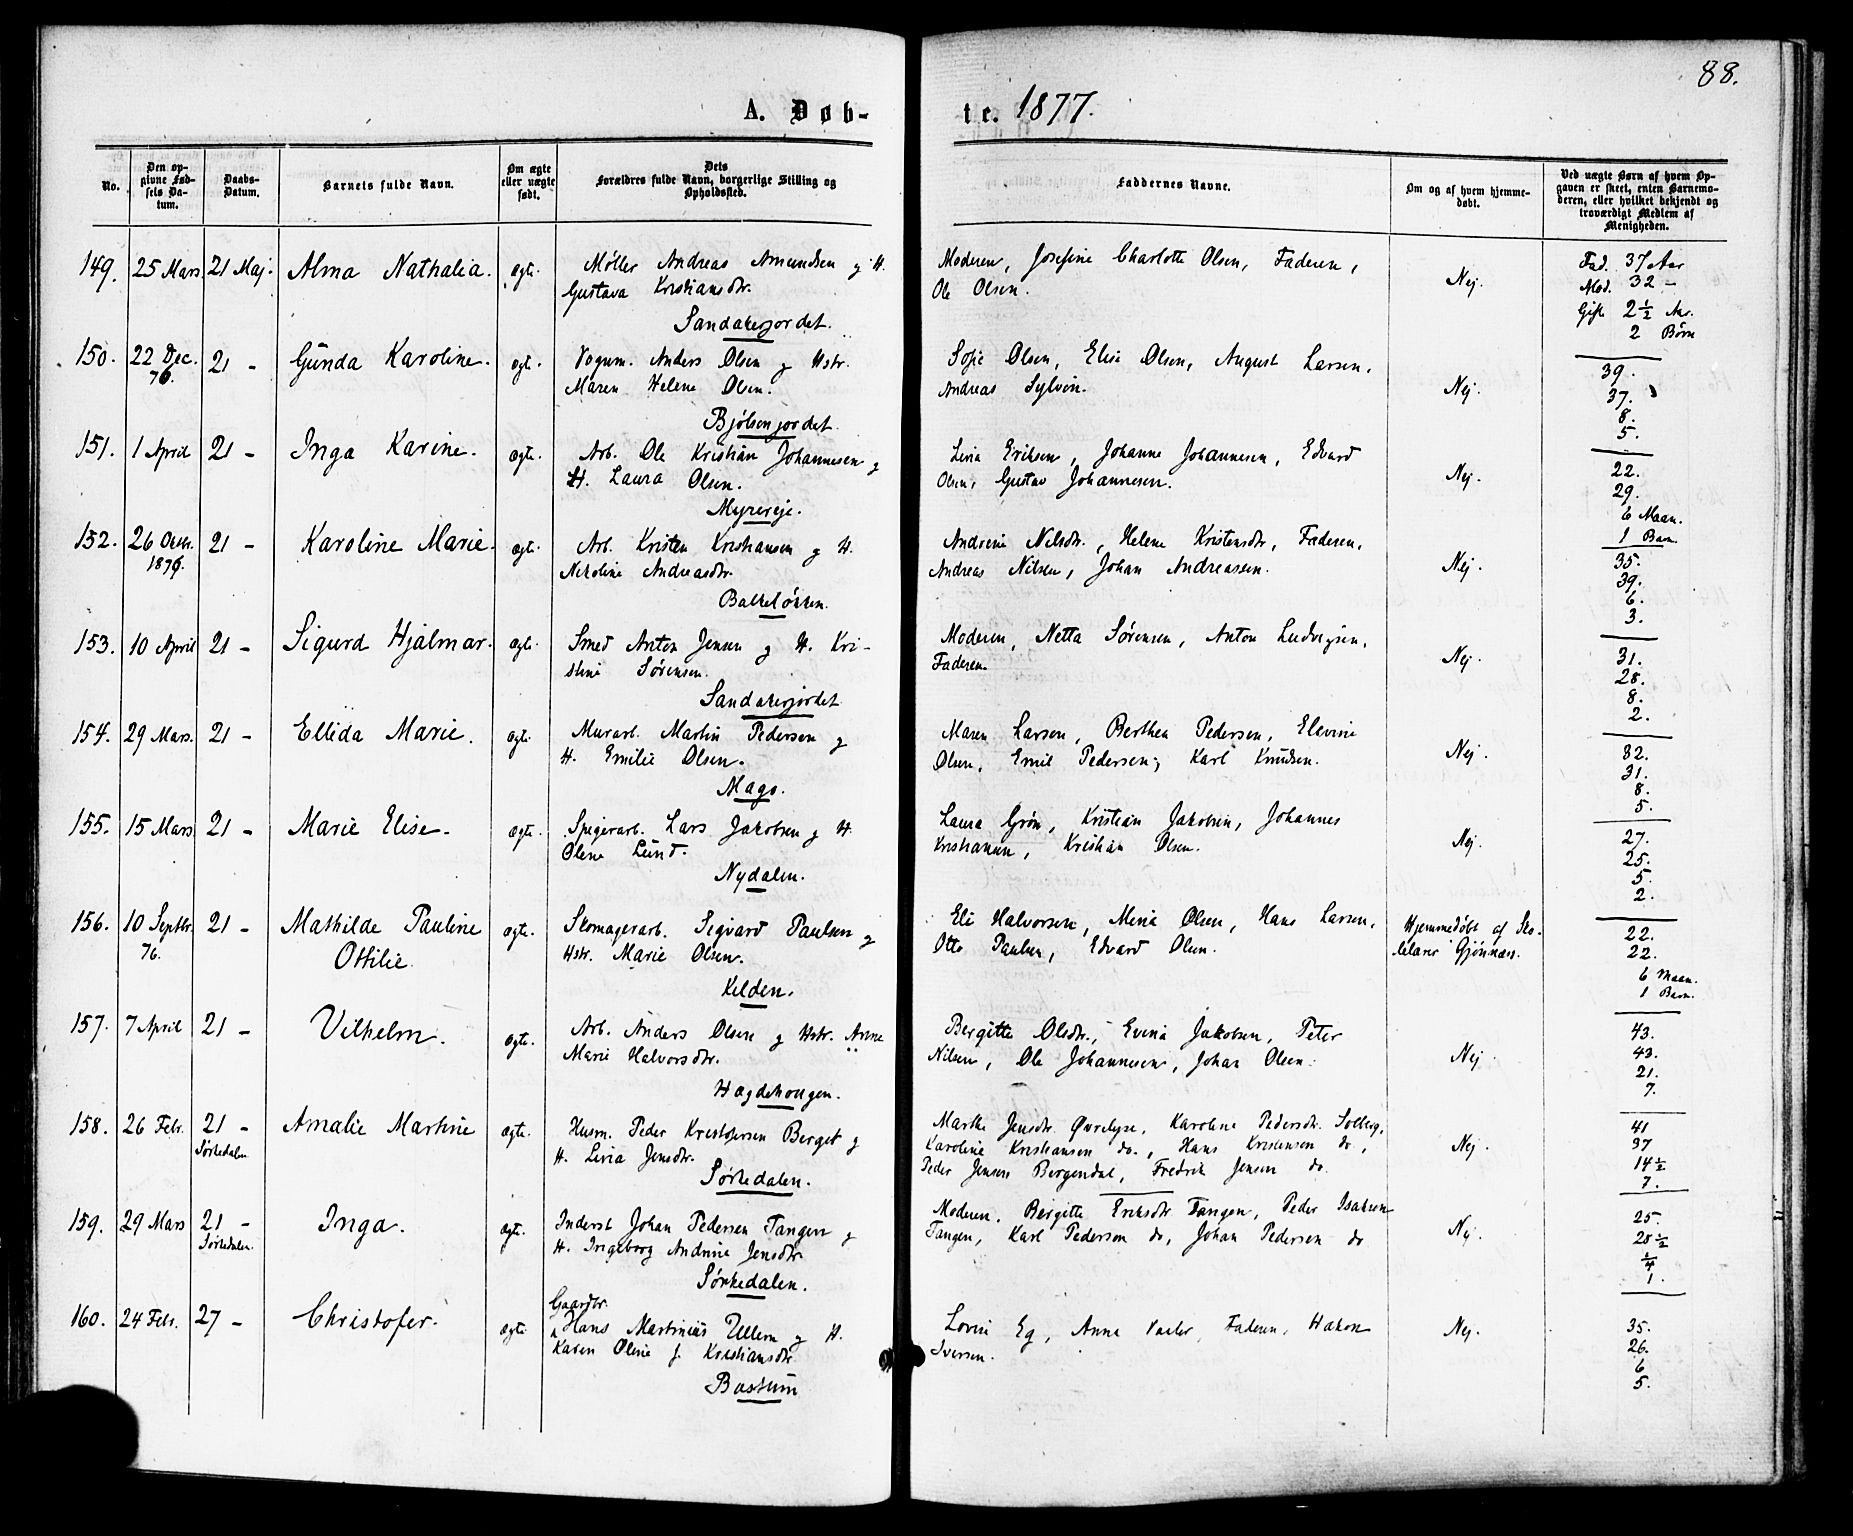 88.
A. Døb-
te. 1877.
No.
Den op-
givne Fød-
sels Da-
tum.
Daabs-
Datum.
Barnets fulde Navn.
Om ægte
eller uægte
født.
Dets
Forældres fulde Navn, borgerlige Stilling og
Opholdssted.
Faddernes Navne.
Om og af hvem hjemme-
døbt.
Ved uægte Børn af hvem Op-
gaven er skeet, enten Barnemo-
deren, eller hvilket bekjendt og
troværdigt Medlem af
Menigheden.
149. 25 Mars 21 Maj. Alma Nathalia. ægte. Møller Andreas Amundsen og H.
Gustava Kristiansdtr.
Sandakerjordet.
Moderen, Josefine Charlotte Olsen, Faderen,
Ole Olsen.
Nej.
Fad. 37 Aar
Mod. 32 -
Gift 2 1/2 Aar.
2 Børn
150. 22 Dec. 21 - Gunda Karoline. ægte. Anders Olsen og Hstr.
76. Maren Helene Olsen.
Bjølsenjordet.
Sofie Olsen, Elise Olsen, August Larsen,
Andreas Sylvin.
Nej.
39.
37.
8.
5.
151. 1 April 21 - Inga Karine. ægte. Arb. Ole Kristian Johannesen og
H. Laura Olsen.
Myrereje.
Livia Eriksen, Johanne Johannesen, Edvard
Olsen, Gustav Johannesen.
Nej.
22.
29.
6 Maan.
1 Barn.
152. 26 21 - Karoline Marie. ægte. Arb. Kristen Kristiansen og H.
1876. Nikoline Andreasdtr.
Bakkeløkken.
Andrine Nilsdtr., Helene Kristensdtr, Faderen,
Andreas Nilsen, Johan Andreassen.
Nej.
35.
39.
6.
3.
153. 10 April 21 - Sigurd Hjalmar. ægte. Smed Anton Jensen og H. Kri-
stine Sørensen.
Sandakerjordet
Moderen, Netta Sørensen, Anton Ludvigsen,
Faderen.
Nej.
31.
28.
8.
2.
154. 29 Mars. 21 - Ellida Marie. ægte. Murarb. Martin Pedersen og
H. Emilie Olsen.
Mago.
Maren Larsen, Berthea Pedersen, Elevine
Olsen, Emil Pedersen, Karl Knudsen.
Nej.
32.
31.
8.
5.
155. 15 Mars 21 - Marie Elise. ægte. Spigerarb. Lars Jakobsen og H.
Olene Lund.
Nydalen.
Laura Grøn, Kristian Jakobsen, Johannes
Kristiansen, Kristian Olsen.
Nej.
27.
25.
5.
2.
156. 10 Septbr. 21 - Mathilde Pauline ægte. Skomagerarb. Sigvard Paulsen og
76. Ottilie. Hstr. Marie Olsen.
Kilden.
Eli Halvorsen, Mina Olsen, Hans Larsen,
Otto Paulsen, Edvard Olsen.
Hjemmedøbt af Sko-
lelærer Gjönnæss.
22.
22.
6 Maan.
1 Barn.
157. 7 April 21 - Vilhelm. ægte. Arb. Anders Olsen og Hstr. Anne
Marie Halvorsdtr.
Hagdehougen.
Bergitte Olsdtr., Evina Jakobsen, Peter
Nilsen, Ole Johannesen, Johan Olsen.
Nej.
43.
43.
21.
7.
158. 26 Febr. 21 - Amalie Martine ægte. Husm. Peder Kristofersen Berget og
Sørkedalen H. Livia Jensdtr.
Sørkedalen.
Marthe Jensdtr Øvrelyse, Karoline Pedersdtr. Solberg,
Karoline Kristiansen do., Hans Kristensen do,
Peder Jensen Bergendal, Fredrik Jensen do.
Nej.
41
37
14 1/2
7.
159. 29 Mars 21 - Inga. ægte. Inderst Johan Pedersen Tangen og
Sørkedalen. H. Ingeborg Andrine Jensdtr.
Sørkedalen.
Moderen, Bergitte Eriksdtr Tangen, Peder Isaksen
Tangen, Karl Pedersen do, Johan Pedersen do
Nej.
25.
28 1/2
1/4
1.
160. 24 Febr. 27 - Christofer. ægte. Gaardbr.
Hans Martinius Ullern og H.
Karen Oline f. Kristiansdtr
Bastum
Lovise Eg, Anna, Faderen, Hakon
Iversen.
Nej.
35.
26.
6
5.